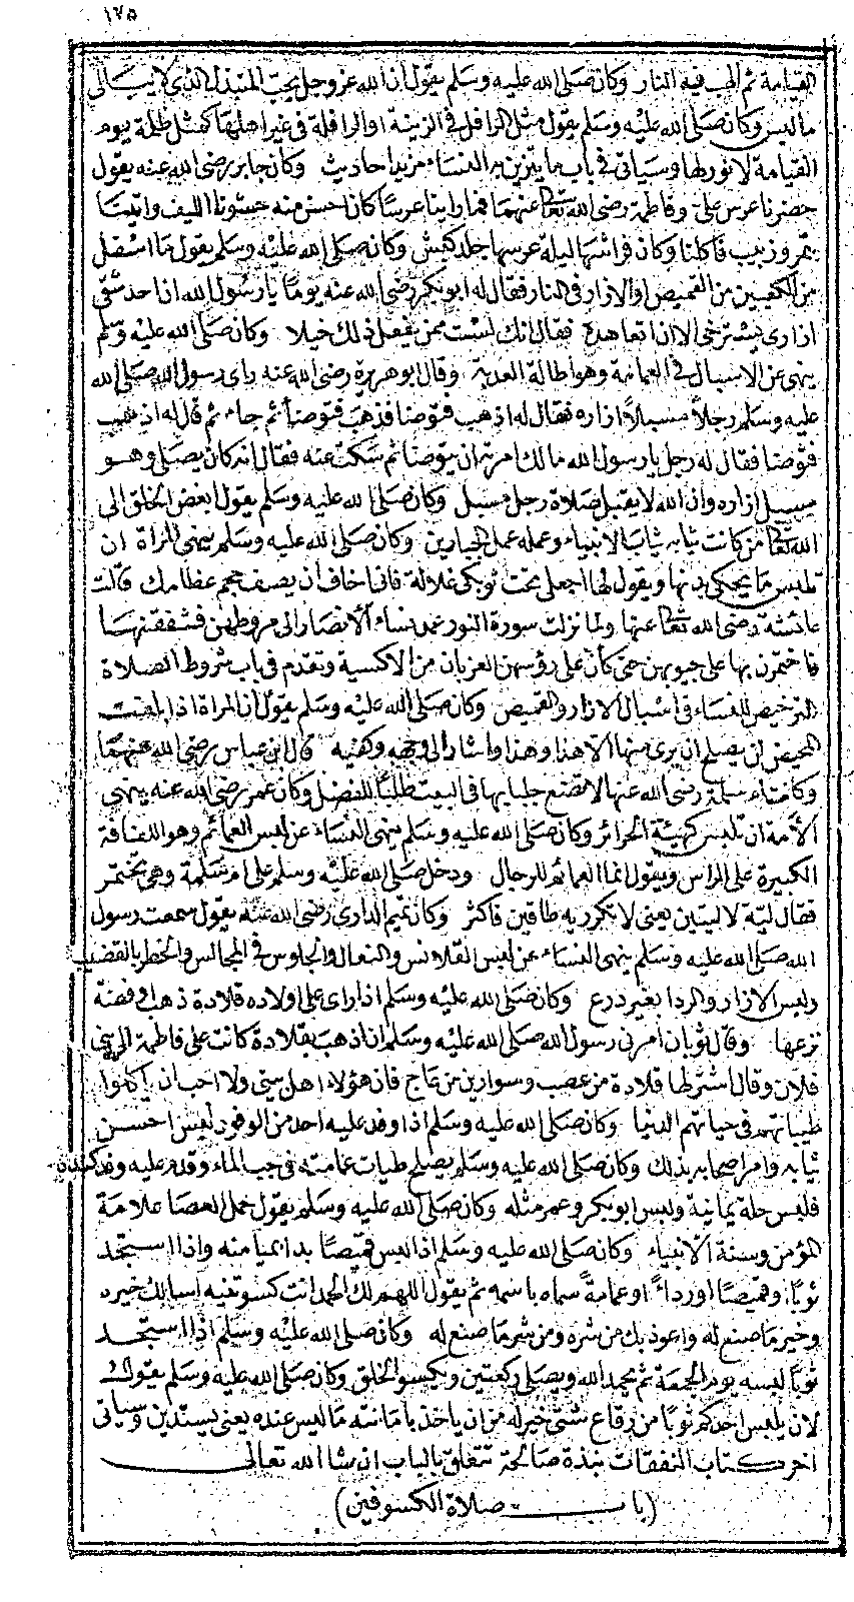 ١٧٥
القيامة ثم الهب فيه النار وكان صلى الله عليه وسلم يقول ان الله عز وجل يحب المتبذل الذى لا يبالى
ما لبس وكان صلى الله عليه وسلم يقول مثل الرافل فى الزينة او الرافلة فى غير اهلها كمثل ظلمة يوم
القيامة لا نور لها وسياتى فى باب ما يتزين به النساء مزيد احاديث وكان جابر رضى الله عنه يقول
حضرنا عرس على وفاطمة رضى الله تعالى عنهما فما راينا عرسًا كان احسن منه حشونا الليف واتينا
بتمر وزبيب فاكلنا وكان فراشها ليلة عرسها جلد كبش وكان صلى الله عليه وسلم يقول ما اسفل
من الكعبين من القميص او الازار فى النار فقال له ابو بكر رضى الله عنه يومًا يا رسول الله ان احد شقى
ازارى يسترخى الا ان اتعاهده فقال انك لست ممن يفعل ذلك خيلا وكان صلى الله عليه وسلم
ينهى عن الاسبال فى العمامة وهو اطالة العذبة وقال ابو هريرة رضى الله عنه راى رسول الله صلى الله
عليه وسلم رجلاً مسبلاً ازاره فقال له اذهب فتوضا فذهب فتوضا ثم جاء ثم قال له اذهب
فتوضا فقال له رجل يا رسول الله مالك امرته ان يتوضا ثم سكت عنه فقال انه كان يصلى وهو
مسبل ازاره وان الله لا يقبل صلاة رجل مسبل وكان صلى الله عليه وسلم يقول ابغض الخلق الى
الله تعالى من كانت ثيابه ثياب الانبياء وعمله عمل الجبارين وكان صلى الله عليه وسلم ينهى المراة ان
تلبس ما يحكى بدنها ويقول لها اجعلى تحت ثوبكى غلالة فانى اخاف ان يصف حجم عظامك قالت
عائشة رضى الله تعالى عنها ولما نزلت سورة النور عمد نساء الانصار الى مروطهن فشققنها
فاختمرن بها على جيوبهن حتى كان على رؤسهن الغربان من الاكسية وتقدم فى باب شروط الصلاة
الترخيص للنساء فى اسبال الازار والقميص وكان صلى الله عليه وسلم يقول ان المراة اذا بلغت
المحيض لن يصلح ان يرى منها الا هذا وهذا واشار الى وجهه وكفيه قال ابن عباس رضى الله عنهما
وكانت ام سلمة رضى الله عنها لا تضع جلبابها فى البيت طلبًا للفضل وكان عمر رضى الله عنه ينهى
الأمة ان تلبس كهيئة الحرائر وكان صلى الله عليه وسلم ينهى النساء عن لبس العمائم وهو اللفافة
الكبيرة على الراس ويقول انما العمائم للرجال ودخل صلى الله عليه وسلم على ام سلمة وهى تختمر
فقال ليّة لا ليتين يعنى لا تكرر به طاقين فاكثر وكان تميم الدارى رضى الله عنه يقول سمعت رسول
الله صلى الله عليه وسلم ينهى النساء عن لبس القلانس والنعال والجلوس فى المجالس والخطر بالقضيب
ولبس الازار والردا بغير درع وكان صلى الله عليه وسلم اذا راى على اولاده قلادة ذهب او فضة
نزعها وقال ثوبان امرنى رسول الله صلى الله عليه وسلم ان اذهب بقلادة كانت على فاطمة الى بنى
فلان وقال اشتر لها قلادة من عصب وسوارين من عاج فان هؤلاء اهل بيتى ولا احب ان ياكلوا
طيباتهم فى حياتهم الدنيا وكان صلى الله عليه وسلم اذا وفد عليه احد من الوفود لبس احسن
ثيابه وامر اصحابه بذلك وكان صلى الله عليه وسلم يصلح طيات عمامته فى جب الماء وقدم عليه وفد كندة
فلبس حلة يمانية ولبس ابو بكر وعمر مثله وكان صلى الله عليه وسلم يقول حمل العصا علامة
المؤمن وسنة الانبياء وكان صلى الله عليه وسلم اذا لبس قميصًا بدا بميامنه واذا استجد
ثوبًا وقميصًا او رداءً او عمامةً سماه باسمه ثم يقول اللهم لك الحمد انت كسوتنيه اسالك خيره
وخير ما صنع له واعوذ بك من شره ومن شر ما صنع له وكان صلى الله عليه وسلم اذا استجد
ثوبًا لبسه يوم الجمعة ثم يحمد الله ويصلى ركعتين ويكسو الخلق وكان صلى الله عليه وسلم يقول
لان يلبس احدكم ثوبًا من رقاع شتى خير له من ان ياخذ بامانته ما ليس عنده يعنى يستدين وسياتى
اخر كتاب النفقات نبذة صالحة تتعلق بالباب ان شا الله تعالى
(باب صلاة الكسوفين)